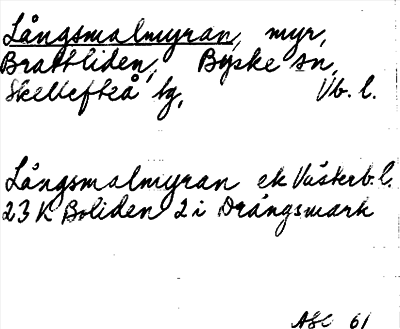 Långsmalmyran, myr,
Brattliden, Byske sn,
Skellefteå tg, Vb. l.
Långsmalmyran ek Västerb. l.
23 K Boliden 2 i Drängsmark
61